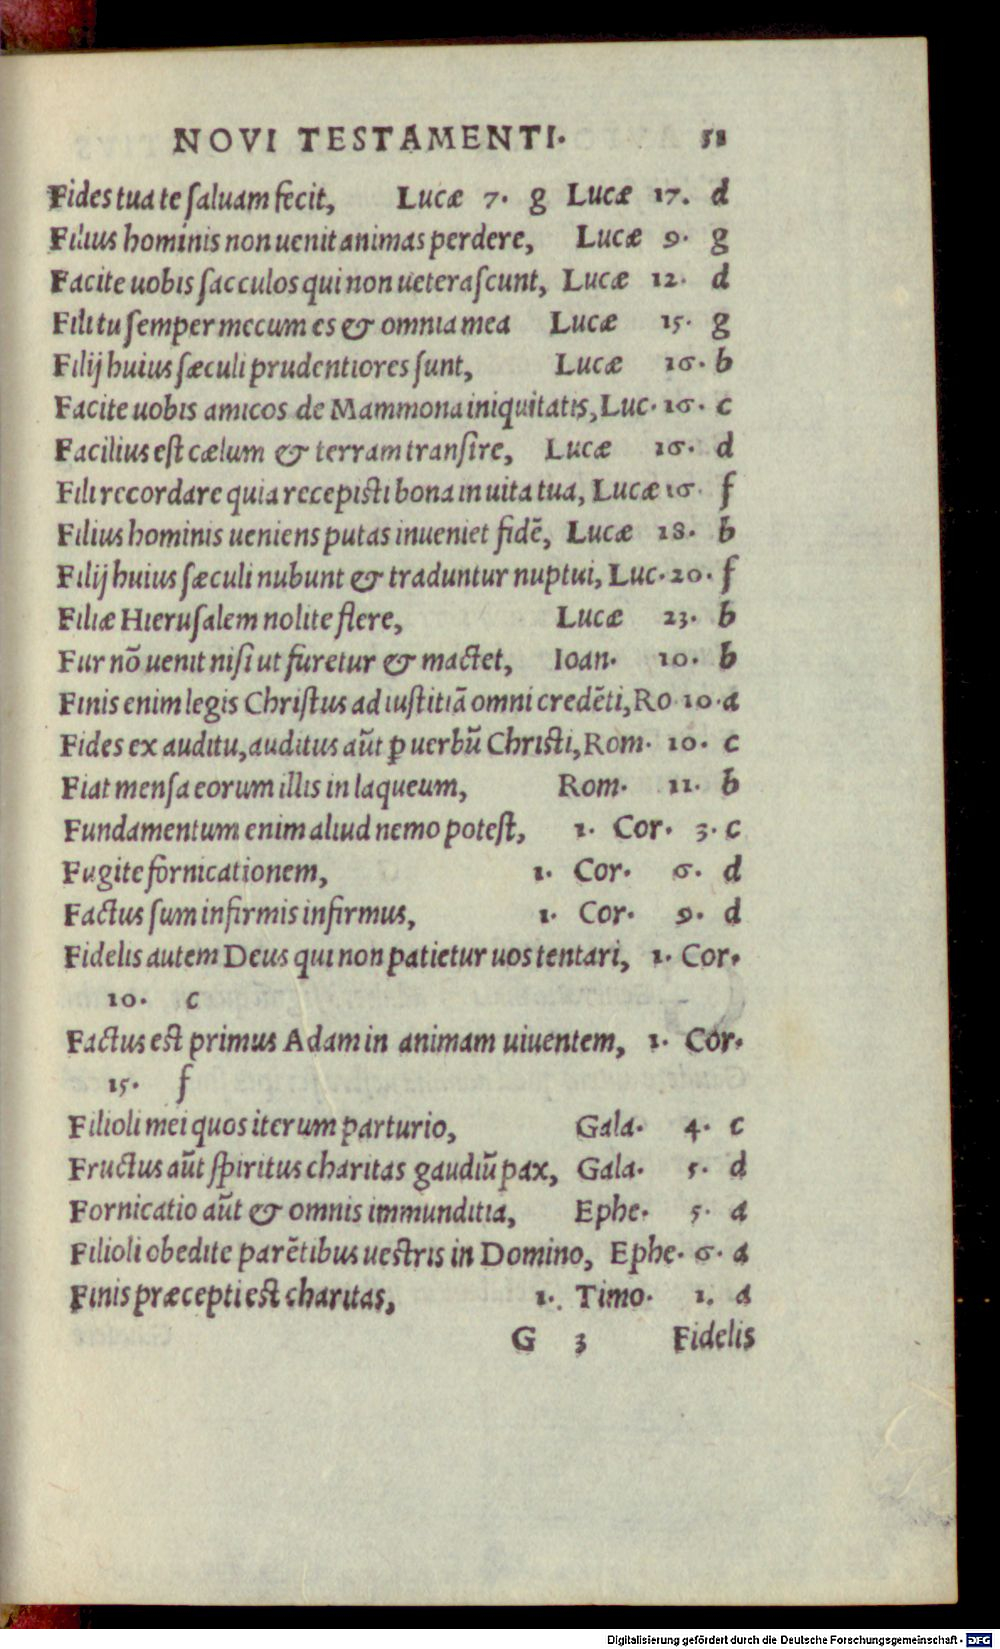 NOVI TESTAMENTI. 51
Fides tua te ſaluam fecit, Lucæ 7. g Lucæ 17. d
Filius hominis non uenit animas perdere, Lucæ 9. g
Facite uobis ſacculos qui non ueteraſcunt, Lucæ 12. d
Fili tu ſemper mecum es & omnia mea Lucæ 15. g
Filij huius ſæculi prudentiores ſunt, Lucæ 16. b
Facite uobis amicos de Mammona iniquitatis, Luc. 16. c
Facilius eſt cælum & terram tranſire, Lucæ 16. d
Fili recordare quia recepiſti bona in uita tua, Lucæ 16. f
Filius hominis ueniens putas inueniet fidē, Lucæ 18. b
Filij huius ſæculi nubunt & traduntur nuptui, Luc. 20. f
Filiæ Hieruſalem nolite flere, Lucæ 23. b
Fur nō uenit niſi ut furetur & mactet, Ioan. 10. b
Finis enim legis Chriſtus ad iuſtitiā omni credēti, Ro 10. a
Fides ex auditu, auditus aūt ꝑ uerbū Chriſti, Rom. 10. c
Fiat menſa eorum illis in laqueum, Rom. 11. b
Fundamentum enim aliud nemo poteſt, 1. Cor. 3. c
Fugite fornicationem, 1. Cor. 6. d
Factus ſum infirmis infirmus, 1. Cor. 9. d
Fidelis autem Deus qui non patietur uos tentari, 1. Cor.
10. c
Factus eſt primus Adam in animam uiuentem, 1. Cor.
15. f
Filioli mei quos iterum parturio, Gala. 4. c
Fructus aūt ſpiritus charitas gaudiū pax, Gala. 5. d
Fornicatio aūt & omnis immunditia, Ephe. 5. a
Filioli obedite parētibus ueſtris in Domino, Ephe. 6. a
Finis præcepti eſt charitas, 1. Timo. 1. a
G 3 Fidelis
Digitalisierung gefördert durch die Deutsche Forschungsgemeinschaft - DFG